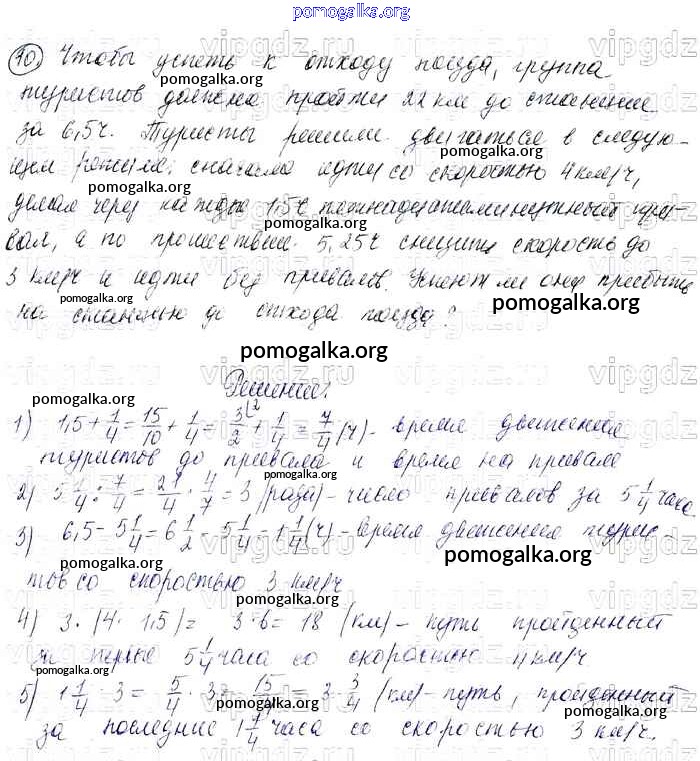 pomogalka.org
10) Чтобы успеть к отходу поезда, группа
туристов должна пройти 22 км до станции
за 6,5 ч. Туристы решили двигаться в следую-
щем режиме: сначала идти со скоростью 4 км/ч,
делая через каждые 1,5 ч пятнадцатиминутный при-
вал, а по прошествии 5,25 ч снизить скорость до
3 км/ч и идти без привалов. Успеют ли они прибыть
на станцию до отхода поезда?
Решение:
1) 1,5 + 1/4 = 15/10 + 1/4 = 3/2 + 1/4 = 7/4 (ч) - время движения
туристов до привала и время на привале
2) 5 1/4 : 7/4 = 21/4 · 4/7 = 3 (раза) - число привалов за 5 1/4 часа
3) 6,5 - 5 1/4 = 6 1/2 - 5 1/4 = 1 1/4 (ч) - время движения турис-
тов со скоростью 3 км/ч
4) 3 · (4 · 1,5) = 3 · 6 = 18 (км) - путь пройденный
за первые 5 1/4 часа со скоростью 4 км/ч
5) 1 1/4 · 3 = 5/4 · 3 = 15/4 = 3 3/4 (км) - путь, пройденный
за последние 1 1/4 часа со скоростью 3 км/ч.